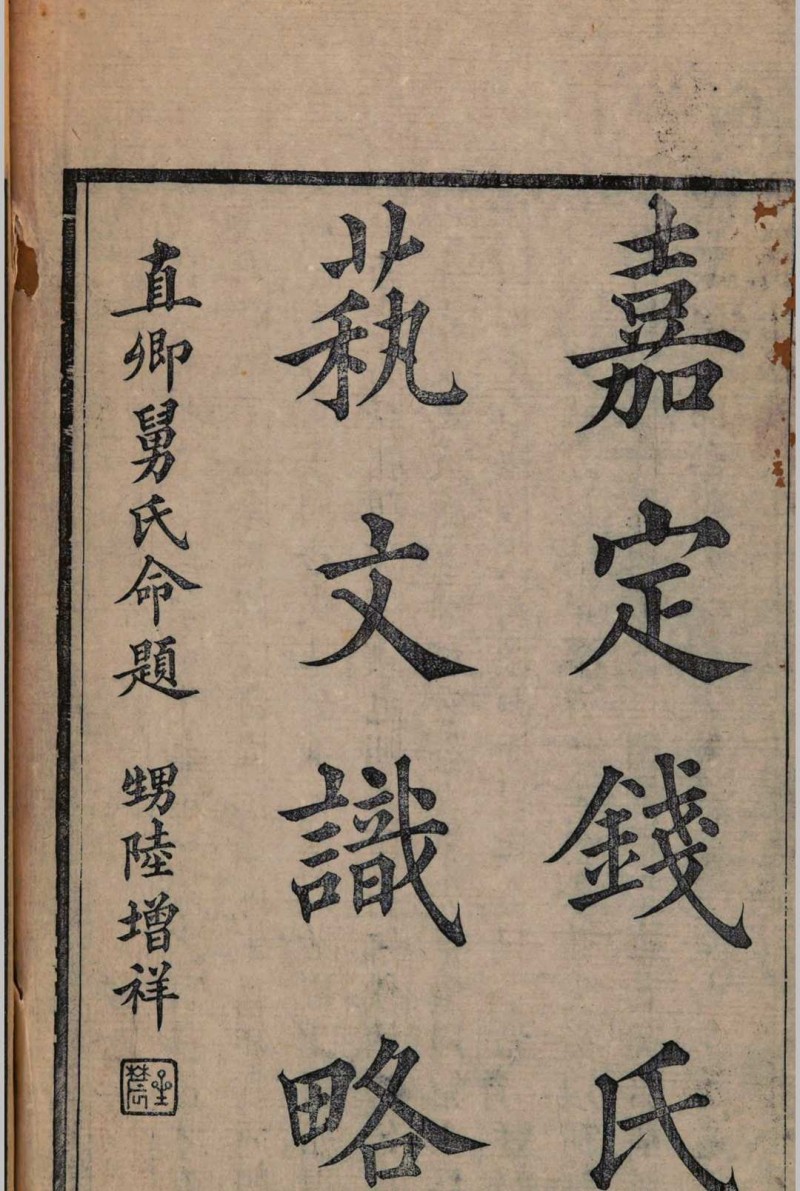 嘉定錢氏
蓺文識略
直卿舅氏命題 甥陸增祥